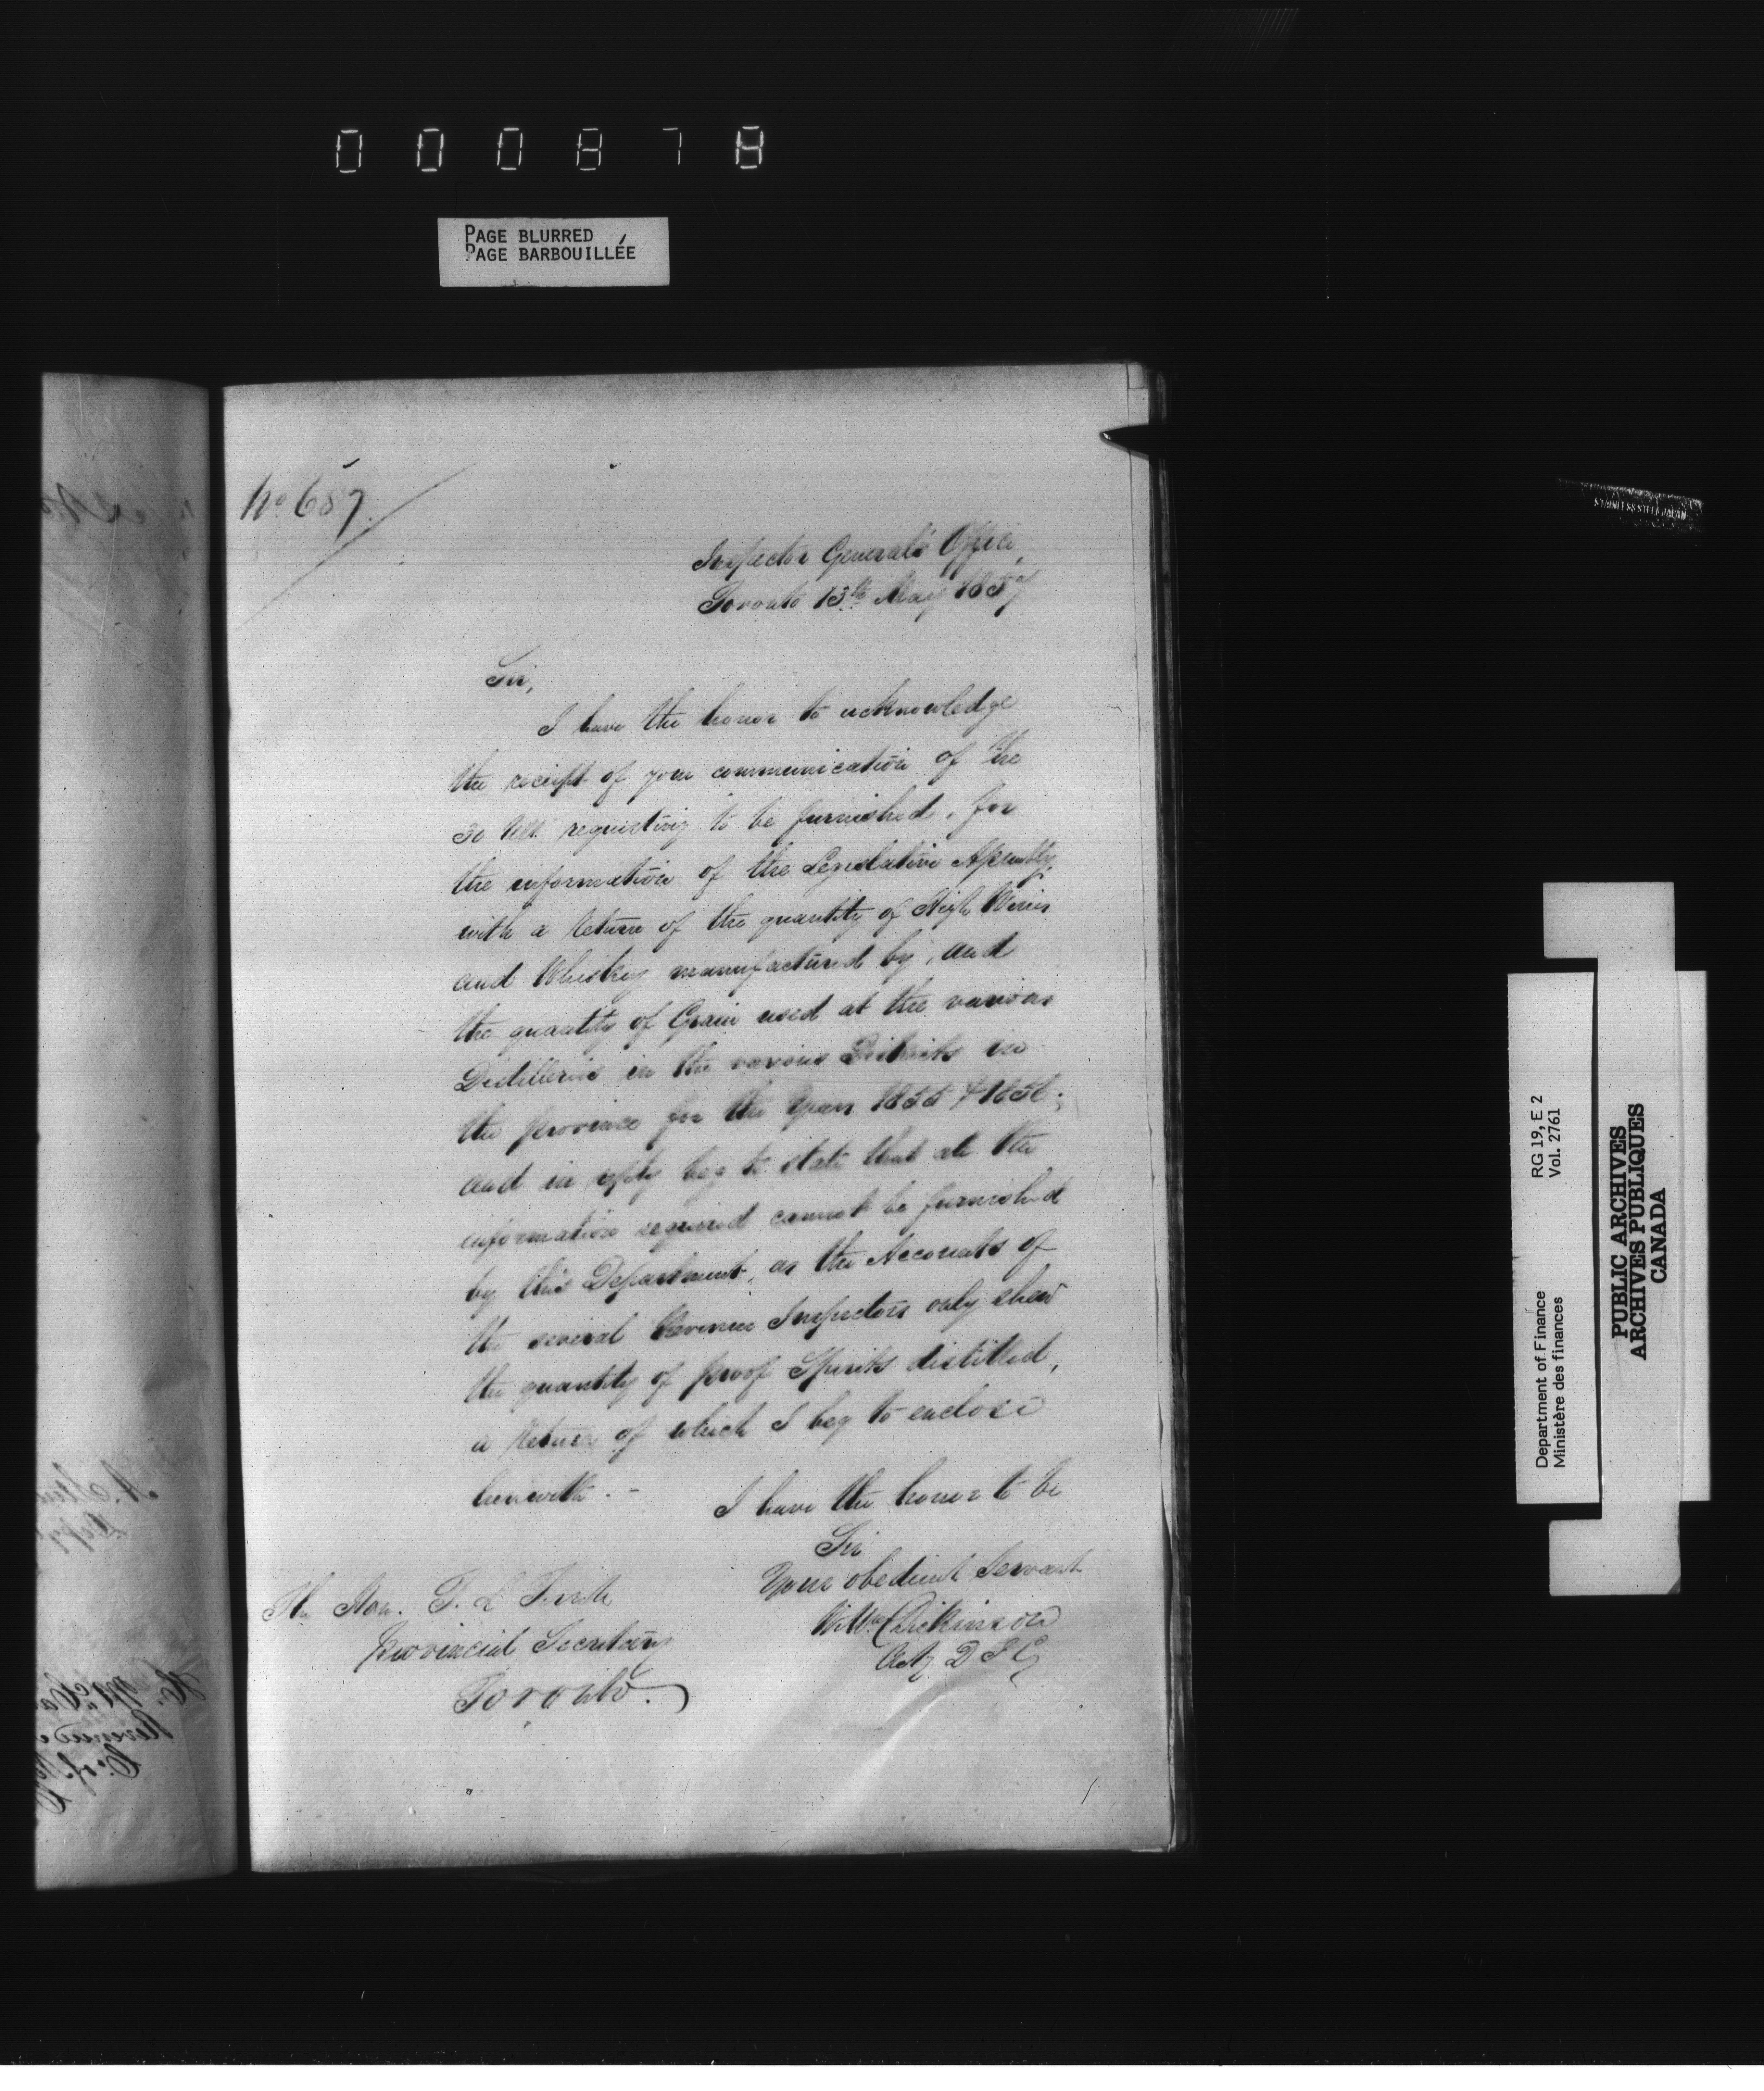 000878
PAGE BLURRED
PAGE BARBOUILLÉE
No 687.
Inspector General's Office,
Toronto 13th May 1857
Sir,
I have the honor to acknowledge
the receipt of your communication of the
30 Ult. requesting to be furnished, for
the information of the Legislative Assembly,
with a Return of the quantity of High Wines
and Whiskey manufactured by, and
the quantity of Grain used at the various
Distilleries in the various Districts in
the province for the Years 1855 & 1856;
and in reply beg to state that all the
information required cannot be furnished
by this Department, as the Accounts of
the several Revenue Inspectors only shew
the quantity of proof Spirits distilled,
a Return of which I beg to enclose
herewith. -
I have the honor to be
Sir
Your obedient Servant
Wm Dickinson
Actg D I G
The Hon. T. L. Terrill
Provincial Secretary
Toronto.
STAINLESS STEEL JAPAN
Department of Finance RG 19, E 2
Ministère des finances Vol. 2761
PUBLIC ARCHIVES
ARCHIVES PUBLIQUES
CANADA